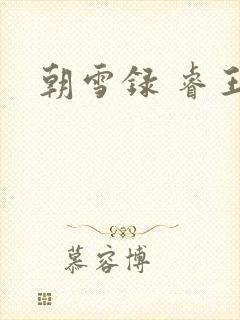 朝雪录 睿王
慕容博